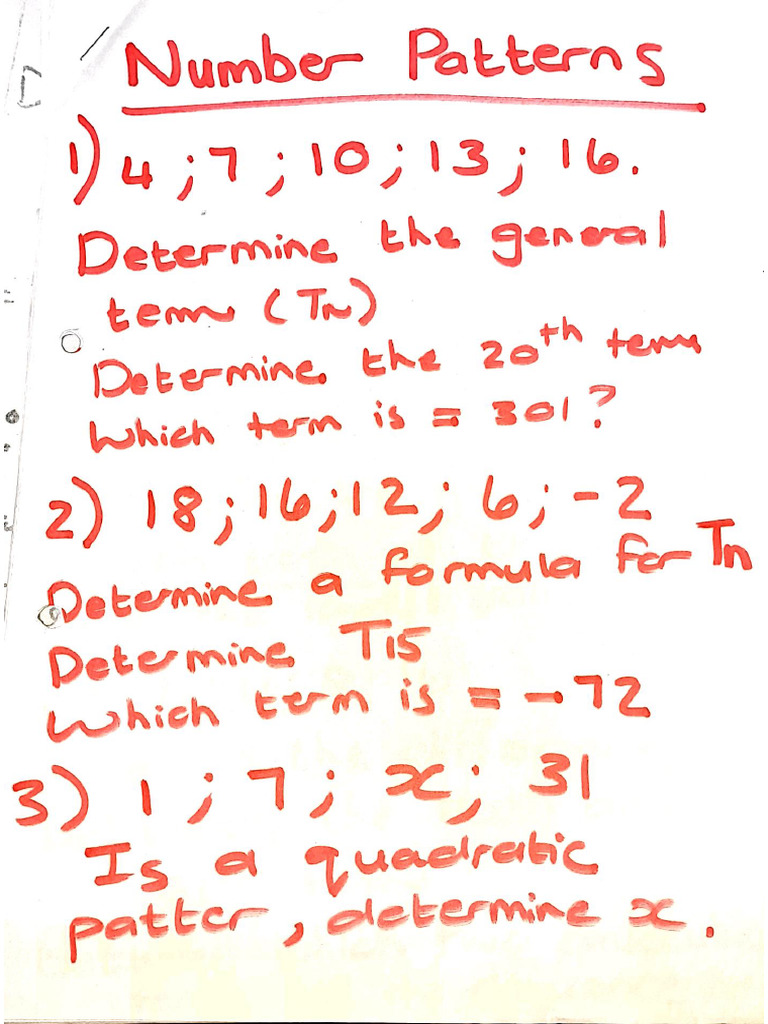 Number Patterns
1) 4 ; 7 ; 10 ; 13 ; 16.
Determine the general
term (Tn)
Determine the 20th term
Which term is = 301?
2) 18 ; 16 ; 12 ; 6 ; -2
Determine a formula for Tn
Determine T15
Which term is = -72
3) 1 ; 7 ; x ; 31
Is a quadratic
patter, determine x.